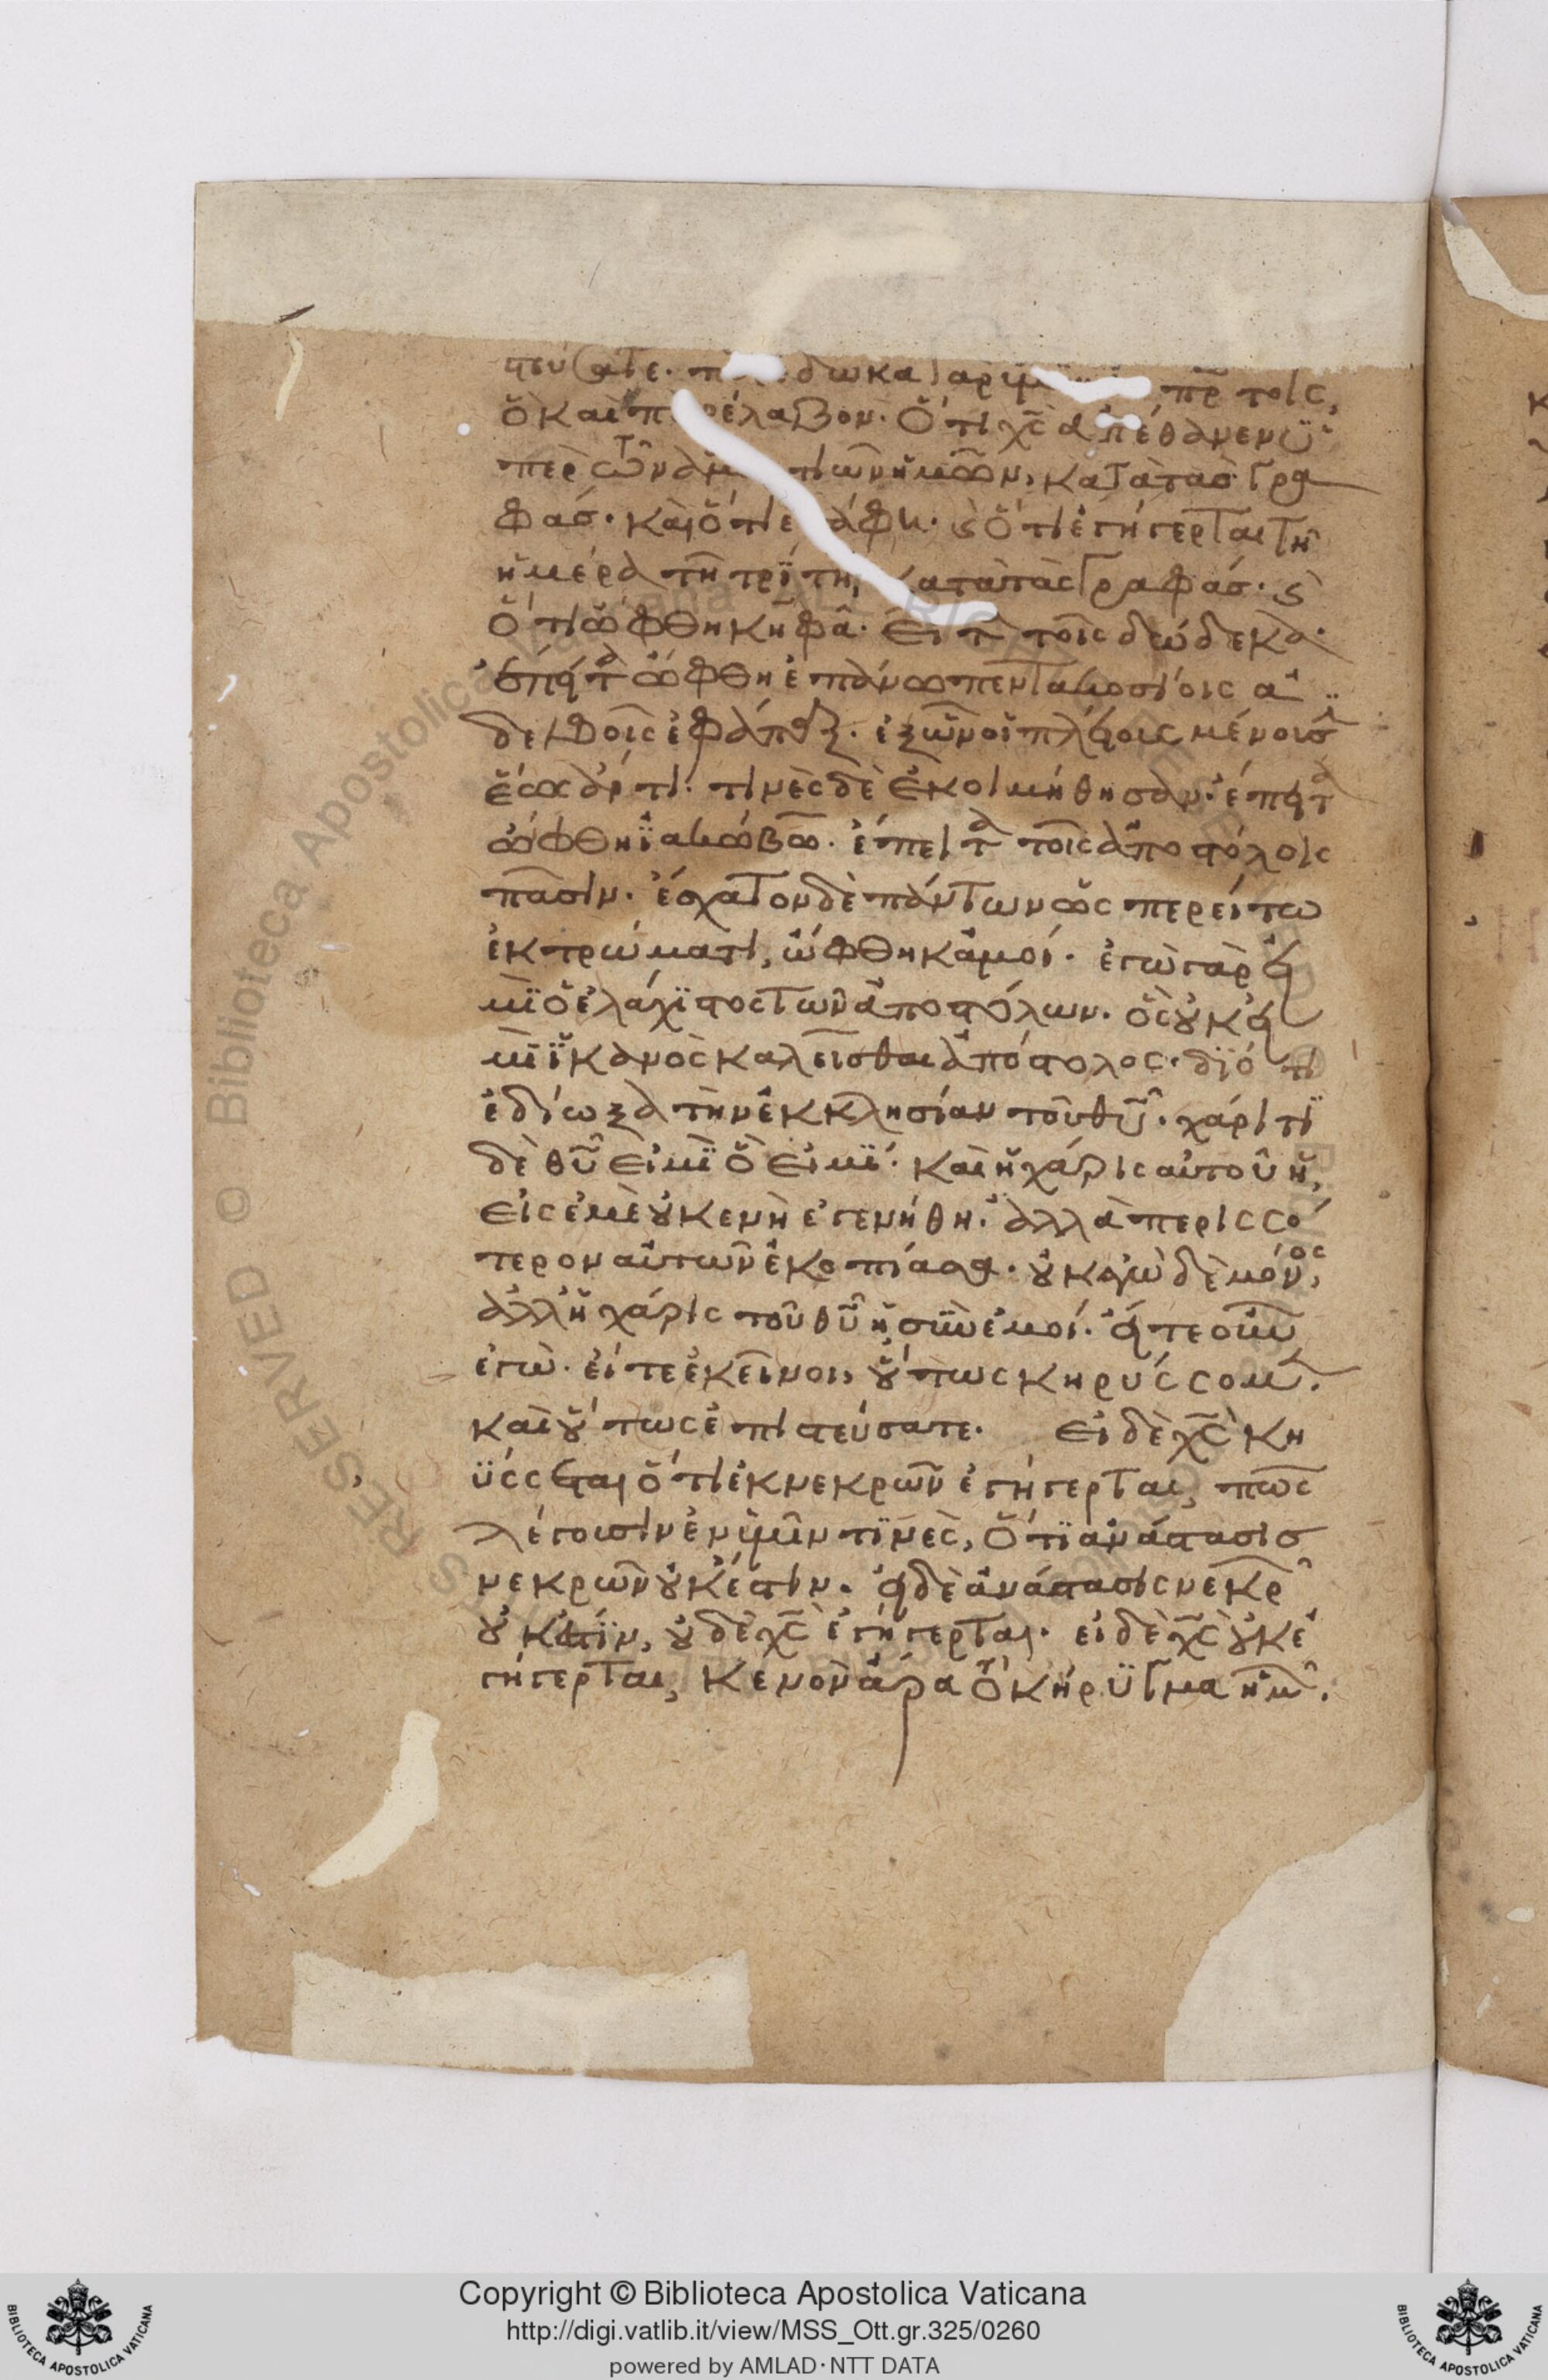 στεύσατε. δωκα γὰρ ὑμ πρ τοις,
ὃ καὶ π ρέλαβον. ὅτι χς ἀπέθανεν ὑ
περ τῶν ἁμ τιῶν ἡμῶν, κατὰ τὰσ γρα
φάσ. καὶ ὅτι ε άφη. ϛ ὅτι ἐγήγερται τῆ
ἡμέρα τῆ τρίτη, ατὰ τὰς γραφάσ. ϛ
ὅτι ὤφθη κηφᾶ. εἶτα τοῖς δώδεκα.
ἔπειτα ὤφθη ἐπάνω πεντακοσίοις ἀ
δελφοῖς ἐφάπαξ. ἐξ ὧν οἱ πλείοις μένουσιν
ἕως ἄρτι. τινὲς δὲ ἐκοιμήθησαν. ἔπειτα
ὤφθη ἰακώβω. ἔπειτα τοῖς ἀποστόλοις
πᾶσιν. ἔσχατον δὲ πάντων ὡς περεὶ τω
ἐκτρώματι, ὤφθη κἀμοί. ἐγὼ γὰρ εἰ
μὶ ὁ ἐλάχιστος τῶν ἀποστόλων. ὃς οὐκ εἰ
μὶ ἱκανὸς καλεῖσθαι ἀπόστολος. διό τι
ἐδίωξα τὴν ἐκκλησίαν τοῦ θυ. χάριτι
δὲ θυ εἰμὶ ὃ εἰμί. καὶ ἡ χάρις αὐτοῦ ἡ,
εἰς ἐμὲ οὐ κενὴ ἐγενήθη. ἀλλὰ περισσό
τερον αὐτῶν ἐκοπίασα. οὐκ ἐγὼ δὲ μόνος,
ἀλλ' ἡ χάρις τοῦ θυ ἡ σὺν ἐμοί. εἴτε οὖν
ἐγὼ. εἴτε ἐκεῖνοι, οὕτως κηρύσσομ.
καὶ οὕτως ἐπιστεύσατε. εἰ δὲ χς κη
ύσσεται ὅτι ἐκ νεκρῶν ἐγήγερται, πῶς
λέγουσιν ἐν ὑμῖν τινὲς, ὅτι ἀνάστασις
νεκρῶν οὐκ ἔστιν. εἰ δὲ ἀνάστασις νεκρ
οὐκ ἔστιν, οὐδὲ χς ἐγήγερται. εἰ δὲ χς οὐκ ἐ
γήγερται, κενὸν ἄρα τὸ κήρυγμα ἡμ.
Copyright © Biblioteca Apostolica Vaticana
http://digi.vatlib.it/view/MSS_Ott.gr.325/0260
powered by AMLAD·NTT DATA